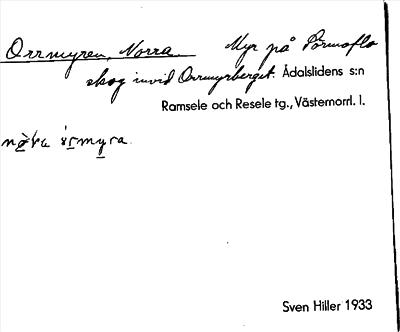 Orrmyren, Norra. Myr på Pärmoflo
skog invid Orrmyrberget. Ådalslidens s:n
Ramsele och Resele tg., Västernorrl. l.
Sven Hiller 1933